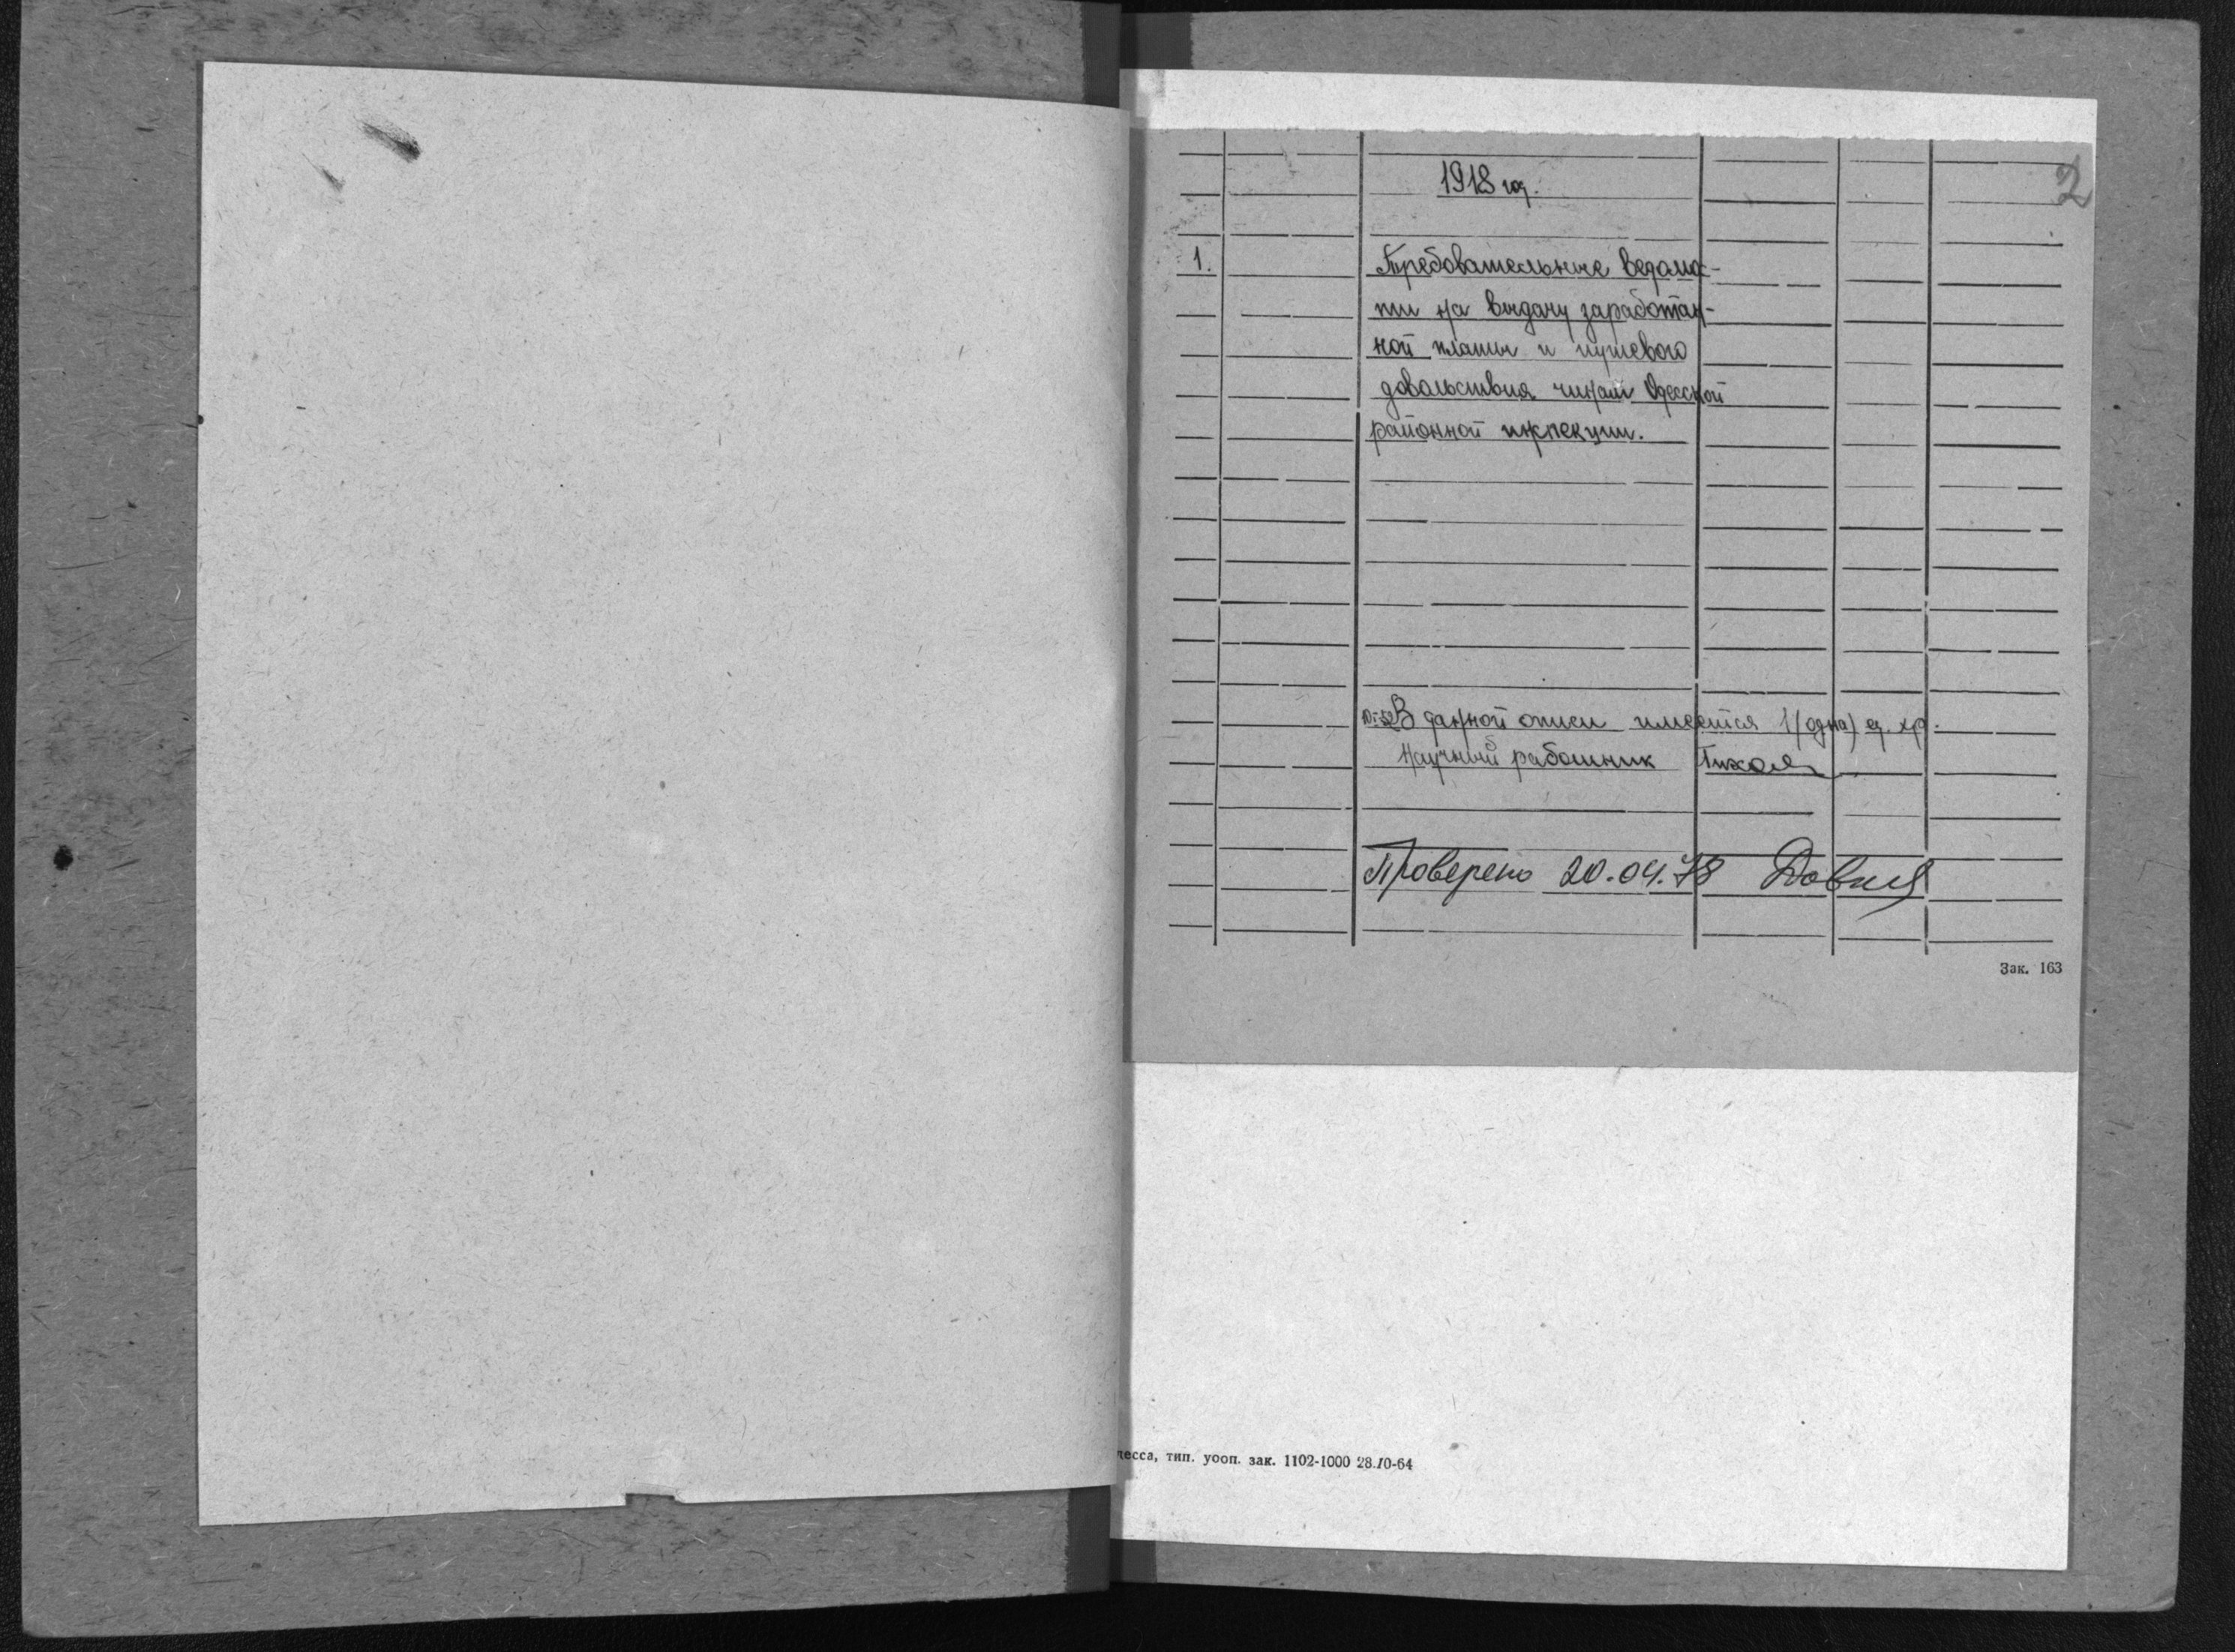 2
1918 год.
1. Требовательные ведомос-
ти на выдачу заработан-
ной платы и путевого
довольствия чинам Одесской
районной инспекции.
В данной описи имеется 1 (одна) ед. хр.
Научный работник
Проверено 20.04.78
Зак. 163
десса, тип. уооп. зак. 1102-1000 28.10-64